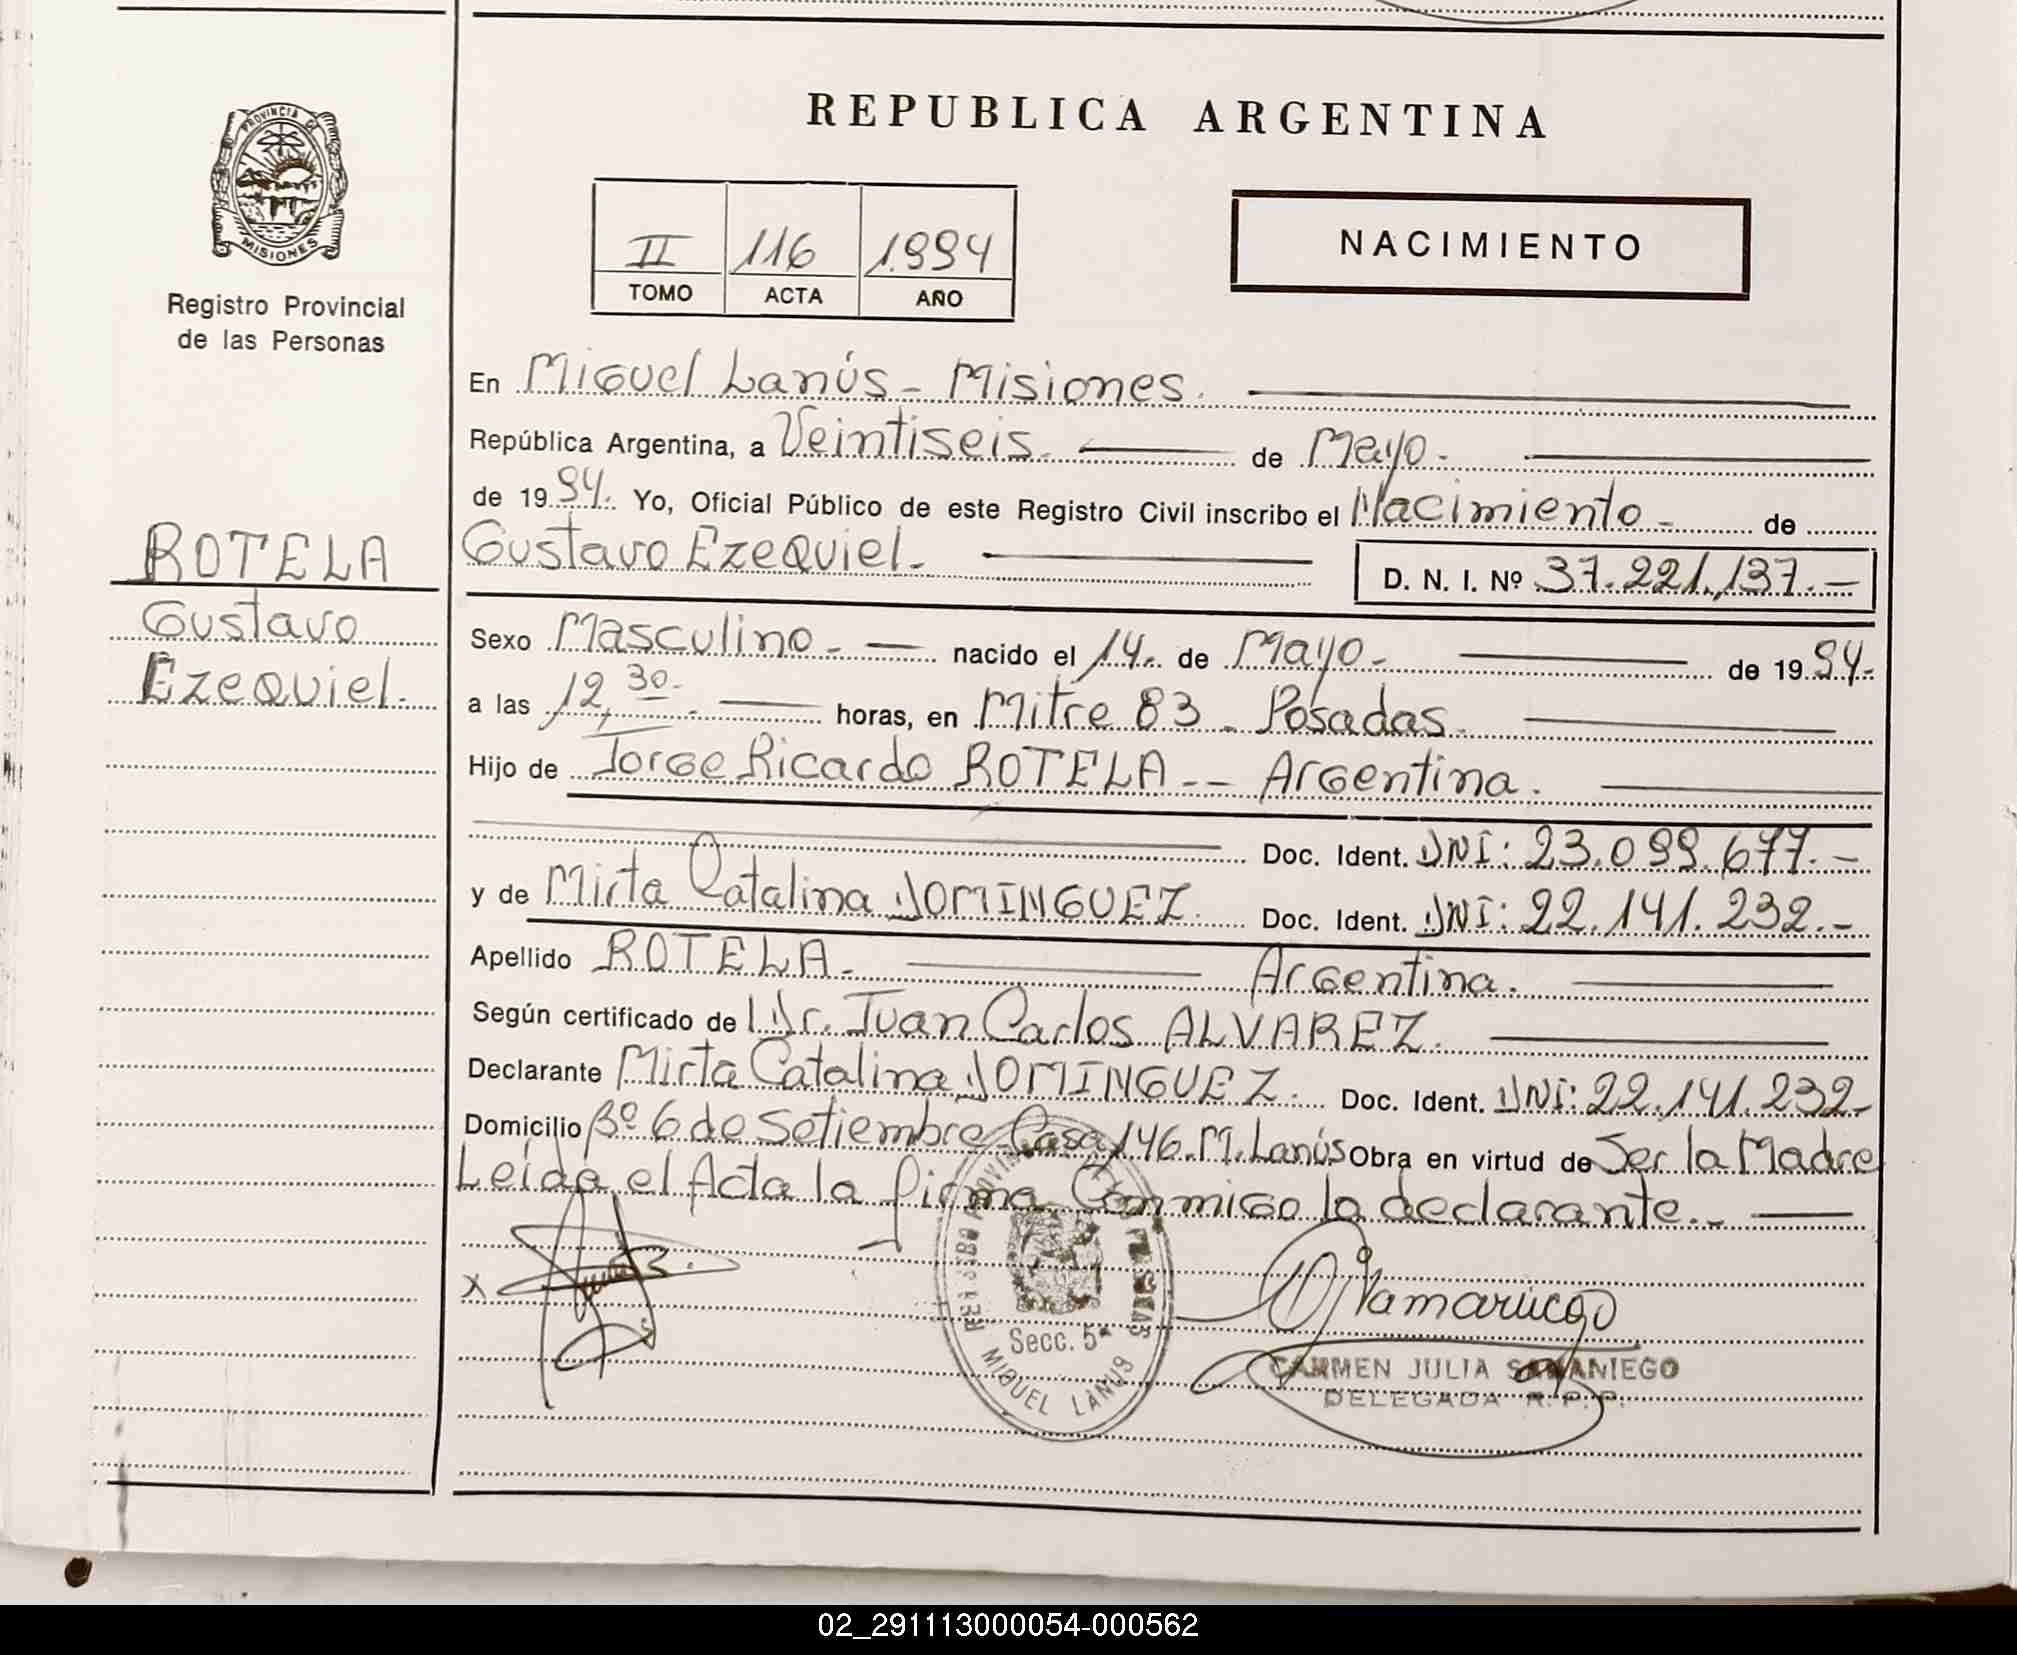 REPUBLICA ARGENTINA
PROVINCIA DE MISIONES
Registro Provincial
de las Personas
II 116 1.994
TOMO ACTA AÑO
NACIMIENTO
En Miguel Lanús - Misiones.
República Argentina, a Veintiseis. de Mayo.
de 1994. Yo, Oficial Público de este Registro Civil inscribo el Nacimiento - de
Gustavo Ezequiel. D. N. I. Nº 37.221.137.-
ROTELA
Gustavo
Ezequiel.
Sexo Masculino - nacido el 14. de Mayo - de 1994.
a las 12,30. horas, en Mitre 83 - Posadas.
Hijo de Jorge Ricardo ROTELA -- Argentina.
Doc. Ident. DNI: 23.099.677.-
y de Mirta Catalina DOMINGUEZ. Doc. Ident. DNI: 22.141.232.-
Apellido ROTELA. Argentina.
Según certificado de Dr. Juan Carlos ALVAREZ.
Declarante Mirta Catalina DOMINGUEZ. Doc. Ident. DNI: 22.141.232-
Domicilio Bº 6 de Setiembre Casa 146. M. Lanús Obra en virtud de Ser la Madre
Leída el Acta la firma Conmigo la declarante.
X
Secc. 5ª
MIGUEL LANUS
CARMEN JULIA SAMANIEGO
DELEGADA R.P.P.
02_291113000054-000562